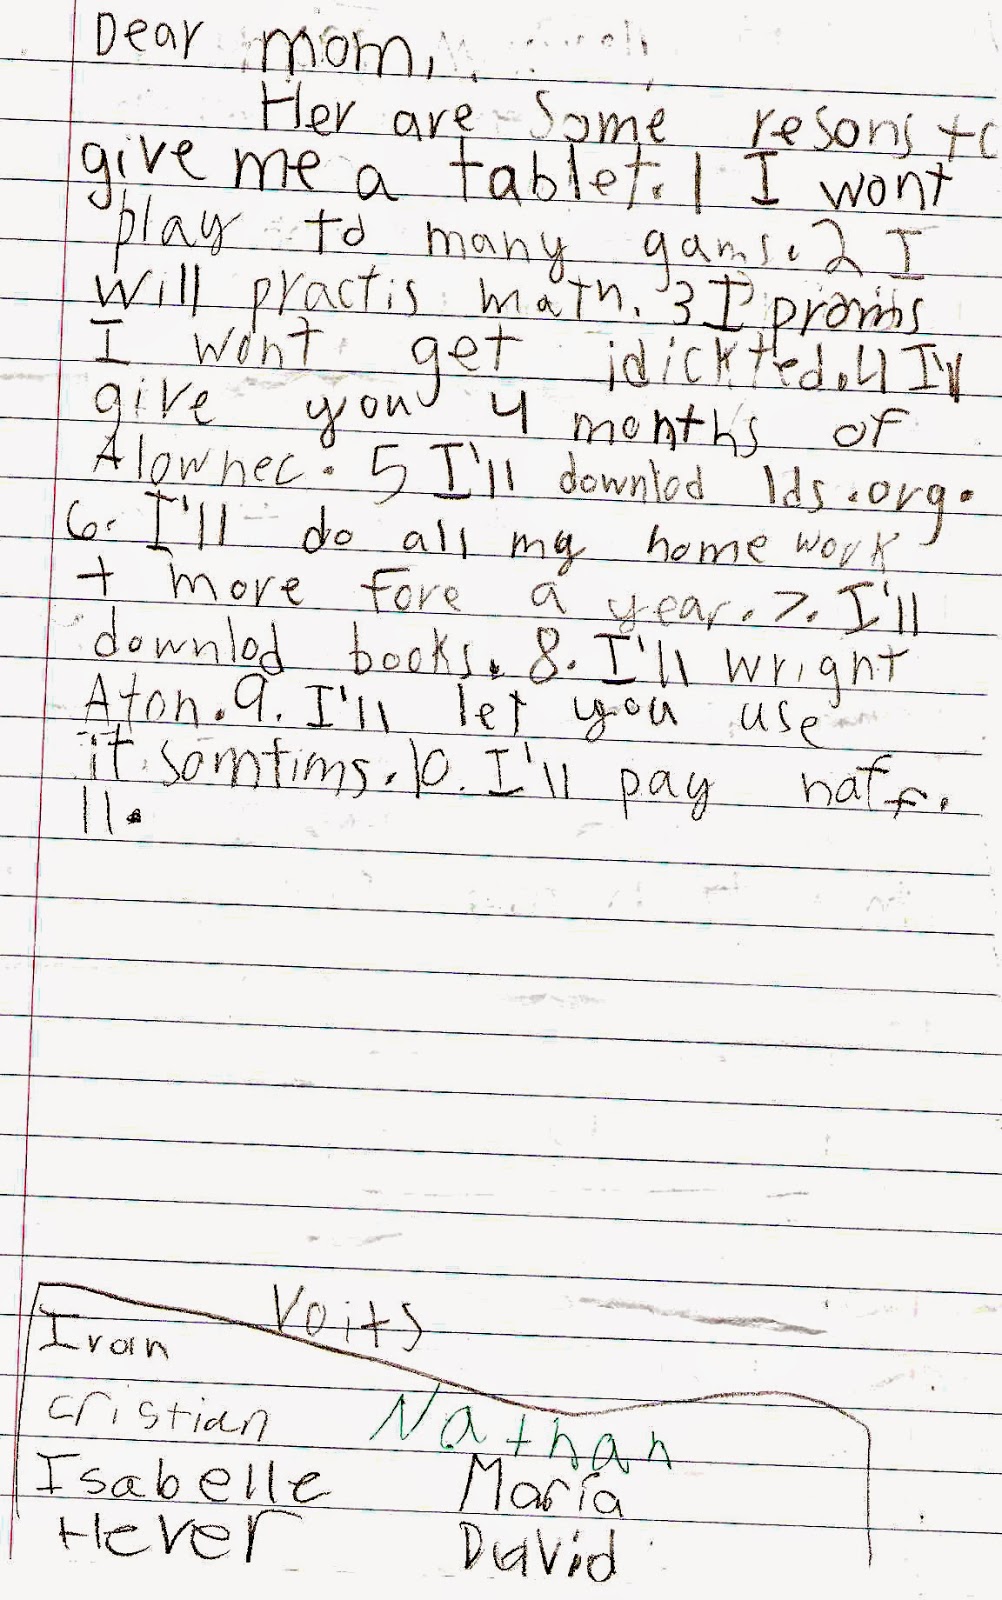 Dear mom,
Her are Some resons to
give me a tablet. 1 I wont
play to many gams. 2 I
will practis math. 3 I promis
I wont get idickted. 4 I'll
give you 4 months of
Alownec. 5 I'll downlod lds.org.
6. I'll do all my home work
+ more fore a year. 7. I'll
downlod books. 8. I'll wright
Aton. 9. I'll let you use
it somtims. 10. I'll pay haff.
11.
Voits
Ivan
cristian Nathan
Isabelle Maria
Hever David